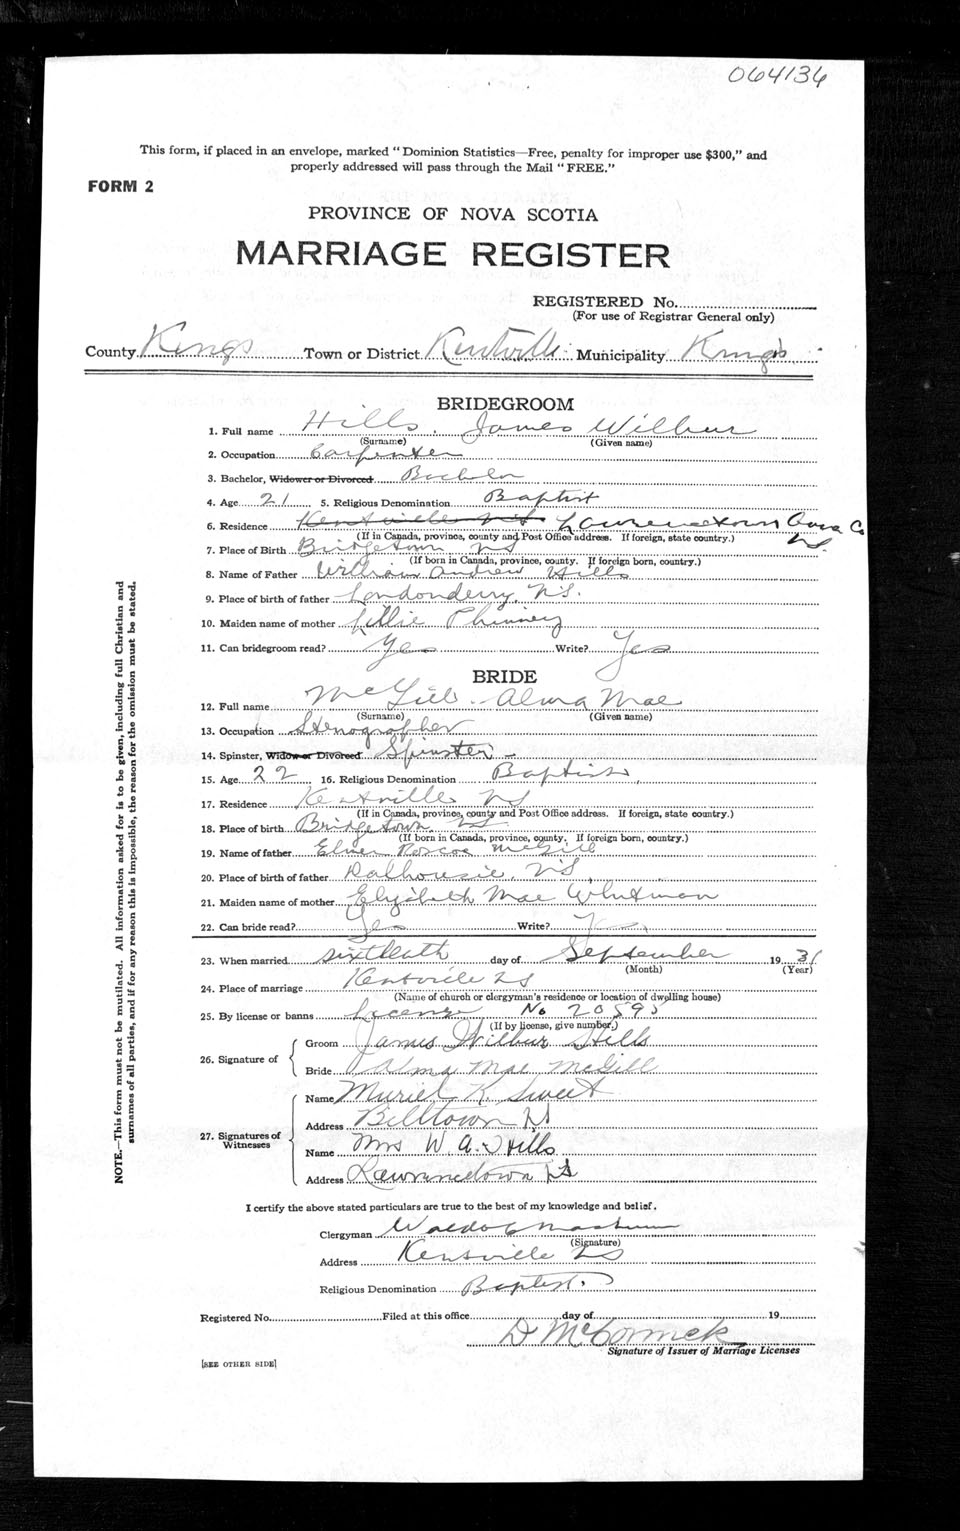 064136
This form, if placed in an envelope, marked "Dominion Statistics—Free, penalty for improper use $300," and
properly addressed will pass through the Mail "FREE."
FORM 2
PROVINCE OF NOVA SCOTIA
MARRIAGE REGISTER
REGISTERED No.
(For use of Registrar General only)
County Kings Town or District Kentville Municipality Kings
BRIDEGROOM
1. Full name Hills, James Wilbur
(Surname) (Given name)
2. Occupation Carpenter
3. Bachelor, Widower or Divorced Bachelor
4. Age 21 5. Religious Denomination Baptist
6. Residence Kentville NS Lawrencetown Anna Co
NS
(If in Canada, province, county and Post Office address. If foreign, state country.)
7. Place of Birth Bridgetown NS
(If born in Canada, province, county. If foreign born, country.)
8. Name of Father William Andrew Hills
9. Place of birth of father Londonderry, NS.
10. Maiden name of mother Lillie Phinney
11. Can bridegroom read? Yes Write? Yes
BRIDE
12. Full name McGill Alma Mae
(Surname) (Given name)
13. Occupation Stenographer
14. Spinster, Widow or Divorced Spinster
15. Age 22 16. Religious Denomination Baptist
17. Residence Kentville NS
(If in Canada, province, county and Post Office address. If foreign, state country.)
18. Place of birth Bridgetown NS
(If born in Canada, province, county. If foreign born, country.)
19. Name of father Elmer Roscoe McGill
20. Place of birth of father Dalhousie, NS
21. Maiden name of mother Elizabeth Mae Whitman
22. Can bride read? Yes Write? Yes
23. When married sixteenth day of September 1931
(Month) (Year)
24. Place of marriage Kentville NS
(Name of church or clergyman's residence or location of dwelling house)
25. By license or banns License No 20595
(If by license, give number.)
26. Signature of
Groom James Wilbur Hills
Bride Alma Mae McGill
27. Signatures of Witnesses
Name Muriel K. Sweet
Address Billtown NS
Name Mrs W. A. Hills
Address Lawrencetown NS
I certify the above stated particulars are true to the best of my knowledge and belief.
Clergyman Waldo C
(Signature)
Address Kentville NS
Religious Denomination Baptist.
Registered No. Filed at this office day of 19
D McCormick
Signature of Issuer of Marriage Licenses
[SEE OTHER SIDE]
NOTE.—This form must not be mutilated. All information asked for is to be given, including full Christian and
surnames of all parties, and if for any reason this is impossible, the reason for the omission must be stated.